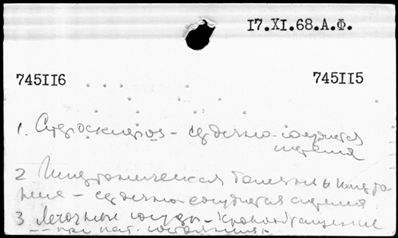 17.XI.68.А.Ф.
745116 745115
1. Атеросклероз – сердечно-сосудистая
система
2 Гипертоническая болезнь и гиперто
ния – сердечно-сосудистая система
3 Легочные сосуды – кровообращение
-- при пат. состояниях.